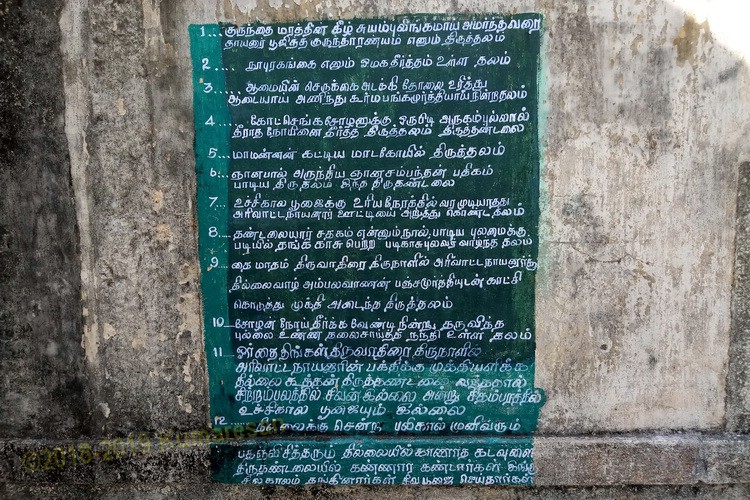 1... குருந்தை மரத்தின் கீழ் சுயம்புலிங்கமாய் அமர்ந்தவரை
தாயனார் பூஜித்த குருந்தாரண்யம் எனும் திருத்தலம்
2 .... நூபுரகங்கை எனும் ஓமகதீர்த்தம் உள்ள தலம்
3.... ஆமையின் செருக்கை அடக்கி தோலை உரித்து
ஆடையாய் அணிந்து கூர்மபங்கமூர்த்தியாய் நின்றதலம்
4 .... கோட்செங்கசோழனுக்கு ஒருபிடி அருகம்புல்லால்
தீராத நோயினை தீர்த்த திருத்தலம் திருத்தண்டலை
5... மாமன்னன் கட்டிய மாடகோயில் திருத்தலம்
6... ஞானபால் அருந்திய ஞானசம்பந்தன் பதிகம்
பாடிய திருதலம் இந்த திருகண்டலை
7... உச்சிகால பூஜைக்கு உரியநேரத்தில் வரமுடியாதது
அரிவாட்டநாயனார் ஊட்டியை அறுத்து கொண்ட தலம்
8... தண்டலையார் சதகம் என்னும்நூல்பாடிய புலமைக்கு
படியில் தங்க காசு பெற்ற படிகாசுபுலவர் வாழ்ந்த தலம்
9... தை மாதம் திருவாதிரை திருநாளில் அரிவாட்டநாயனாருக்கு
தில்லைவாழ் அம்பலவாணன் பஞ்சமூர்த்தியுடன் காட்சி
கொடுத்து முக்தி அடைந்த திருத்தலம்
10... சோழன் நோய் தீர்க்க வேண்டி நின்று தருவித்த
புல்லை உண்ண தலைசாய்த்த நந்தி உள்ள தலம்
11... ஓர்தை திங்கள் திருவாதிரை திருநாளில்
அரிவாட்டநாயனாரின் பக்திக்கு முக்தியளிக்க
தில்லை கூத்தன் திருத்தண்டலை வந்ததால்
சிற்றம்பலத்தில் சிவன் இல்லை அன்று சிதம்பரத்தில்
உச்சிகால பூஜையும் இல்லை
12... தில்லைக்கு சென்ற புலிகால் முனிவரும்
பதஞ்சலிசித்தரும் தில்லையில்காணாத கடவுளை
திருதண்டலையில் கண்ணார கண்டார்கள்
சிலகாலம் தங்கினார்கள் சிவபூஜை செய்தார்கள்
©2018-2019